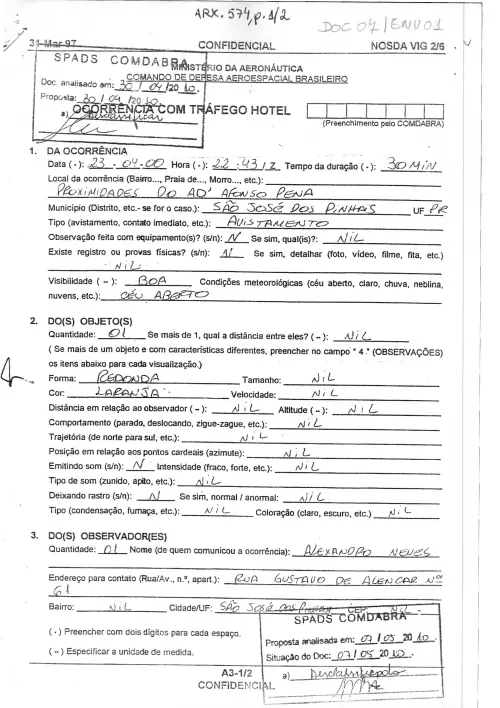 ARX. 574, p. 1/2
DOC 04/ENV01
31-Mar-97 CONFIDENCIAL NOSDA VIG 2/6
SPADS COMDABRA
MINISTÉRIO DA AERONÁUTICA
COMANDO DE DEFESA AEROESPACIAL BRASILEIRO
Doc. analisado em: 30 / 04 /20 10.
Proposta: 30 / 04 /20 10.
OCORRÊNCIA COM TRÁFEGO HOTEL
a)
(Preenchimento pelo COMDABRA)
1. DA OCORRÊNCIA
Data (·): 23 - 04-00 Hora (·): 22:43 / Z Tempo da duração (·): 30 MiN
Local da ocorrência (Bairro..., Praia de..., Morro..., etc.):
PROXiMIDADES DO AD' AFONSO PENA
Município (Distrito, etc.- se for o caso.): SÃO JOSÉ DOS PiNHAIS UF PR
Tipo (avistamento, contato imediato, etc.): AVISTAMENTO
Observação feita com equipamento(s)? (s/n): N Se sim, qual(is)?: NiL
Existe registro ou provas físicas? (s/n): N Se sim, detalhar (foto, vídeo, filme, fita, etc.)
NiL
Visibilidade ( ~ ): BOA Condições meteorológicas (céu aberto, claro, chuva, neblina,
nuvens, etc.): CÉU ABERTO
2. DO(S) OBJETO(S)
Quantidade: 01 Se mais de 1, qual a distância entre eles? ( ~ ): NiL
( Se mais de um objeto e com características diferentes, preencher no campo " 4 ." (OBSERVAÇÕES)
os itens abaixo para cada visualização.)
Forma: REDONDA Tamanho: NiL
Cor: LARANJA Velocidade: NiL
Distância em relação ao observador ( ~ ): NiL Altitude ( ~ ): NiL
Comportamento (parado, deslocando, zigue-zague, etc.): NiL
Trajetória (de norte para sul, etc.): NiL
Posição em relação aos pontos cardeais (azimute): NiL
Emitindo som (s/n): N Intensidade (fraco, forte, etc.): NiL
Tipo de som (zunido, apito, etc.): NiL
Deixando rastro (s/n): N Se sim, normal / anormal: NiL
Tipo (condensação, fumaça, etc.): NiL Coloração (claro, escuro, etc.) NiL
3. DO(S) OBSERVADOR(ES)
Quantidade: 01 Nome (de quem comunicou a ocorrência): ALEXANDRO NEVES
Endereço para contato (Rua/Av., n.º, apart.): RUA GUSTAVO DE ALENCAR Nº
61
Bairro: NiL Cidade/UF: SÃO JOSÉ DOS PiNHAIS CEP: NiL
SPADS COMDABRA
( · ) Preencher com dois dígitos para cada espaço.
Proposta analisada em: 07 / 05 20 10.
( ~ ) Especificar a unidade de medida.
Situação do Doc: 07 / 05 20 10.
A3-1/2 a) Desclassificado
CONFIDENCIAL